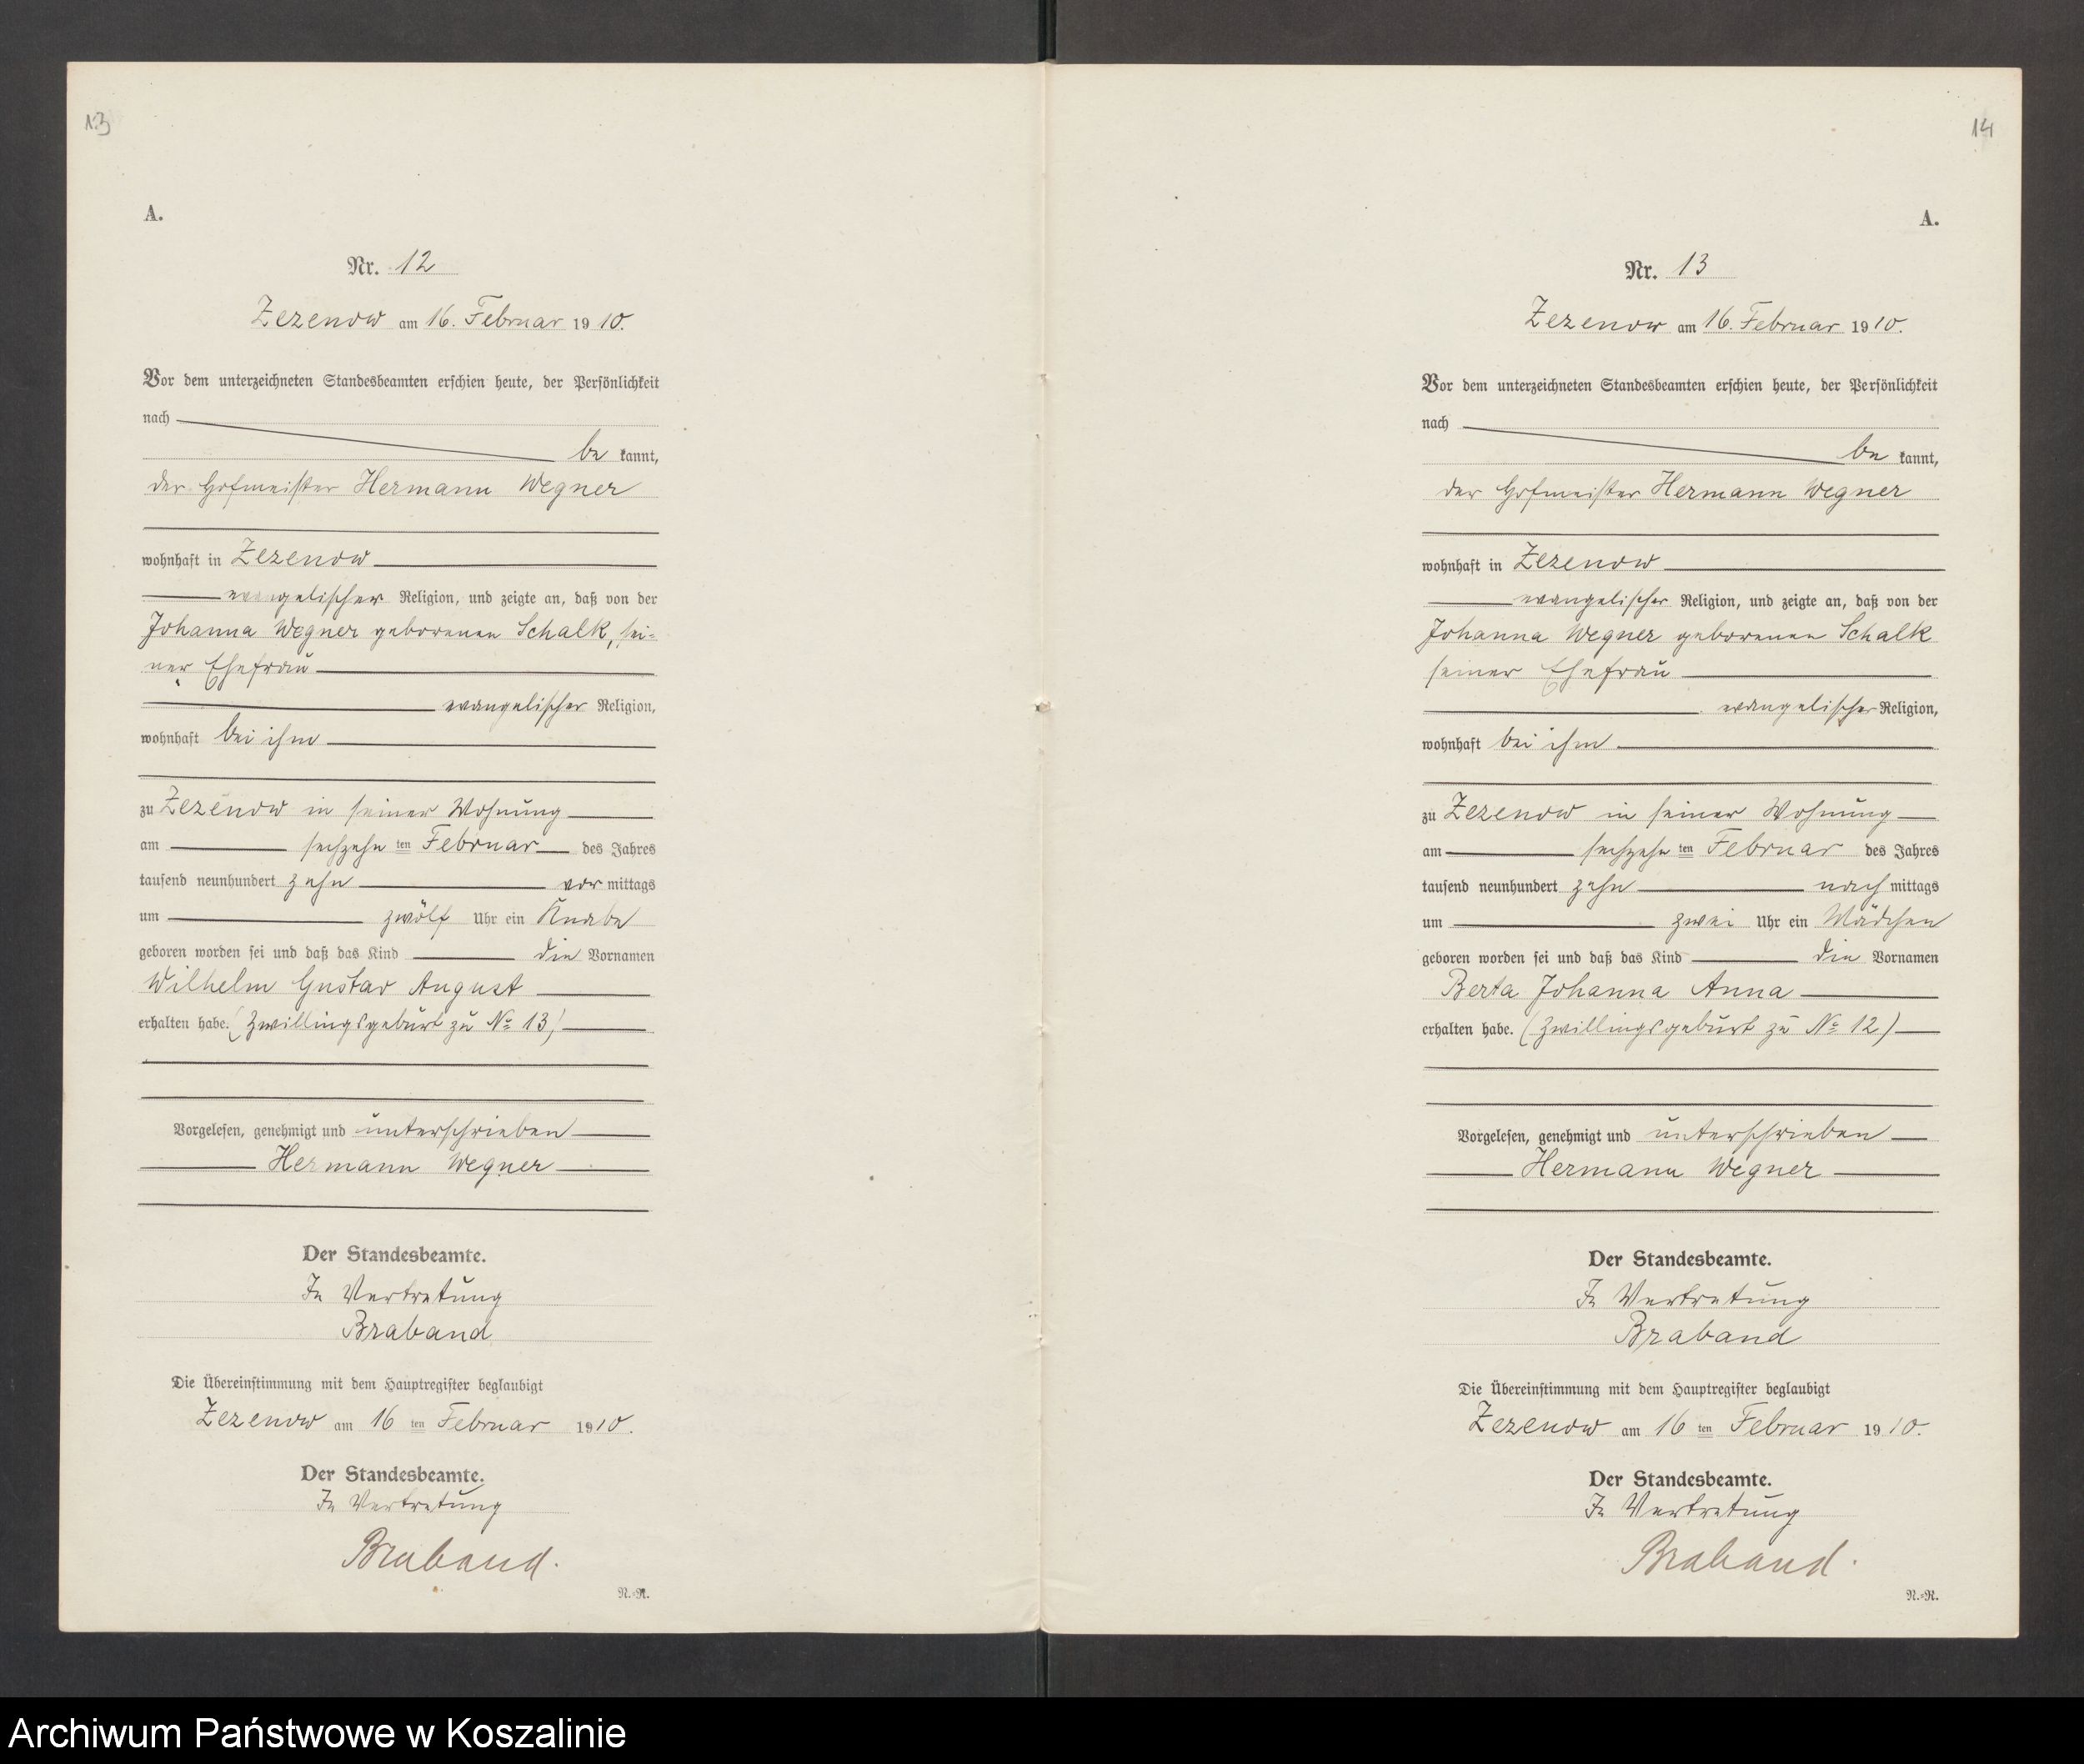 13
A.
Nr. 12
Zezenow am 16. Februar 1910.
Vor dem unterzeichneten Standesbeamten erschien heute, der Persönlichkeit
nach
be kannt,
der Hofmeister Hermann Wegner
wohnhaft in Zezenow
evangelischer Religion, und zeigte an, daß von der
Johanna Wegner geborenen Schalk, sei=
ner Ehefrau
evangelischer Religion,
wohnhaft bei ihm
zu Zezenow in seiner Wohnung
am sechzehn ten Februar des Jahres
tausend neunhundert zehn vor mittags
um zwölf Uhr ein Knabe
geboren worden sei und daß das Kind die Vornamen
Wilhelm Gustav August
erhalten habe. (Zwillingsgeburt zu No 13)
Vorgelesen, genehmigt und unterschrieben
Hermann Wegner
Der Standesbeamte.
In Vertretung
Braband
Die Übereinstimmung mit dem Hauptregister beglaubigt
Zezenow am 16 ten Februar 1910.
Der Standesbeamte.
In Vertretung
Braband.
N.=R.
14
A.
Nr. 13
Zezenow am 16. Februar 1910.
Vor dem unterzeichneten Standesbeamten erschien heute, der Persönlichkeit
nach
be kannt,
der Hofmeister Hermann Wegner
wohnhaft in Zezenow
evangelischer Religion, und zeigte an, daß von der
Johanna Wegner geborenen Schalk
seiner Ehefrau
evangelischer Religion,
wohnhaft bei ihm
zu Zezenow in seiner Wohnung
am sechzehn ten Februar des Jahres
tausend neunhundert zehn nach mittags
um zwei Uhr ein Mädchen
geboren worden sei und daß das Kind die Vornamen
Berta Johanna Anna
erhalten habe. (Zwillingsgeburt zu No 12)
Vorgelesen, genehmigt und unterschrieben
Hermann Wegner
Der Standesbeamte.
In Vertretung
Braband
Die Übereinstimmung mit dem Hauptregister beglaubigt
Zezenow am 16 ten Februar 1910.
Der Standesbeamte.
In Vertretung
Braband.
N.=R.
Archiwum Państwowe w Koszalinie